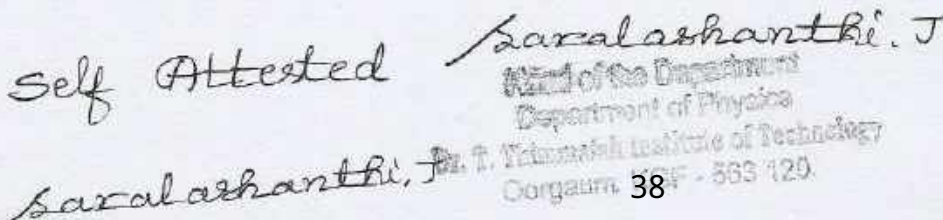 Self Attested saralashanthi. J
Head of the Department
Department of Physics
Dr. T. Thimmaiah Institute of Technology
Oorgaum, KGF - 563 120.
saralashanthi. J
38